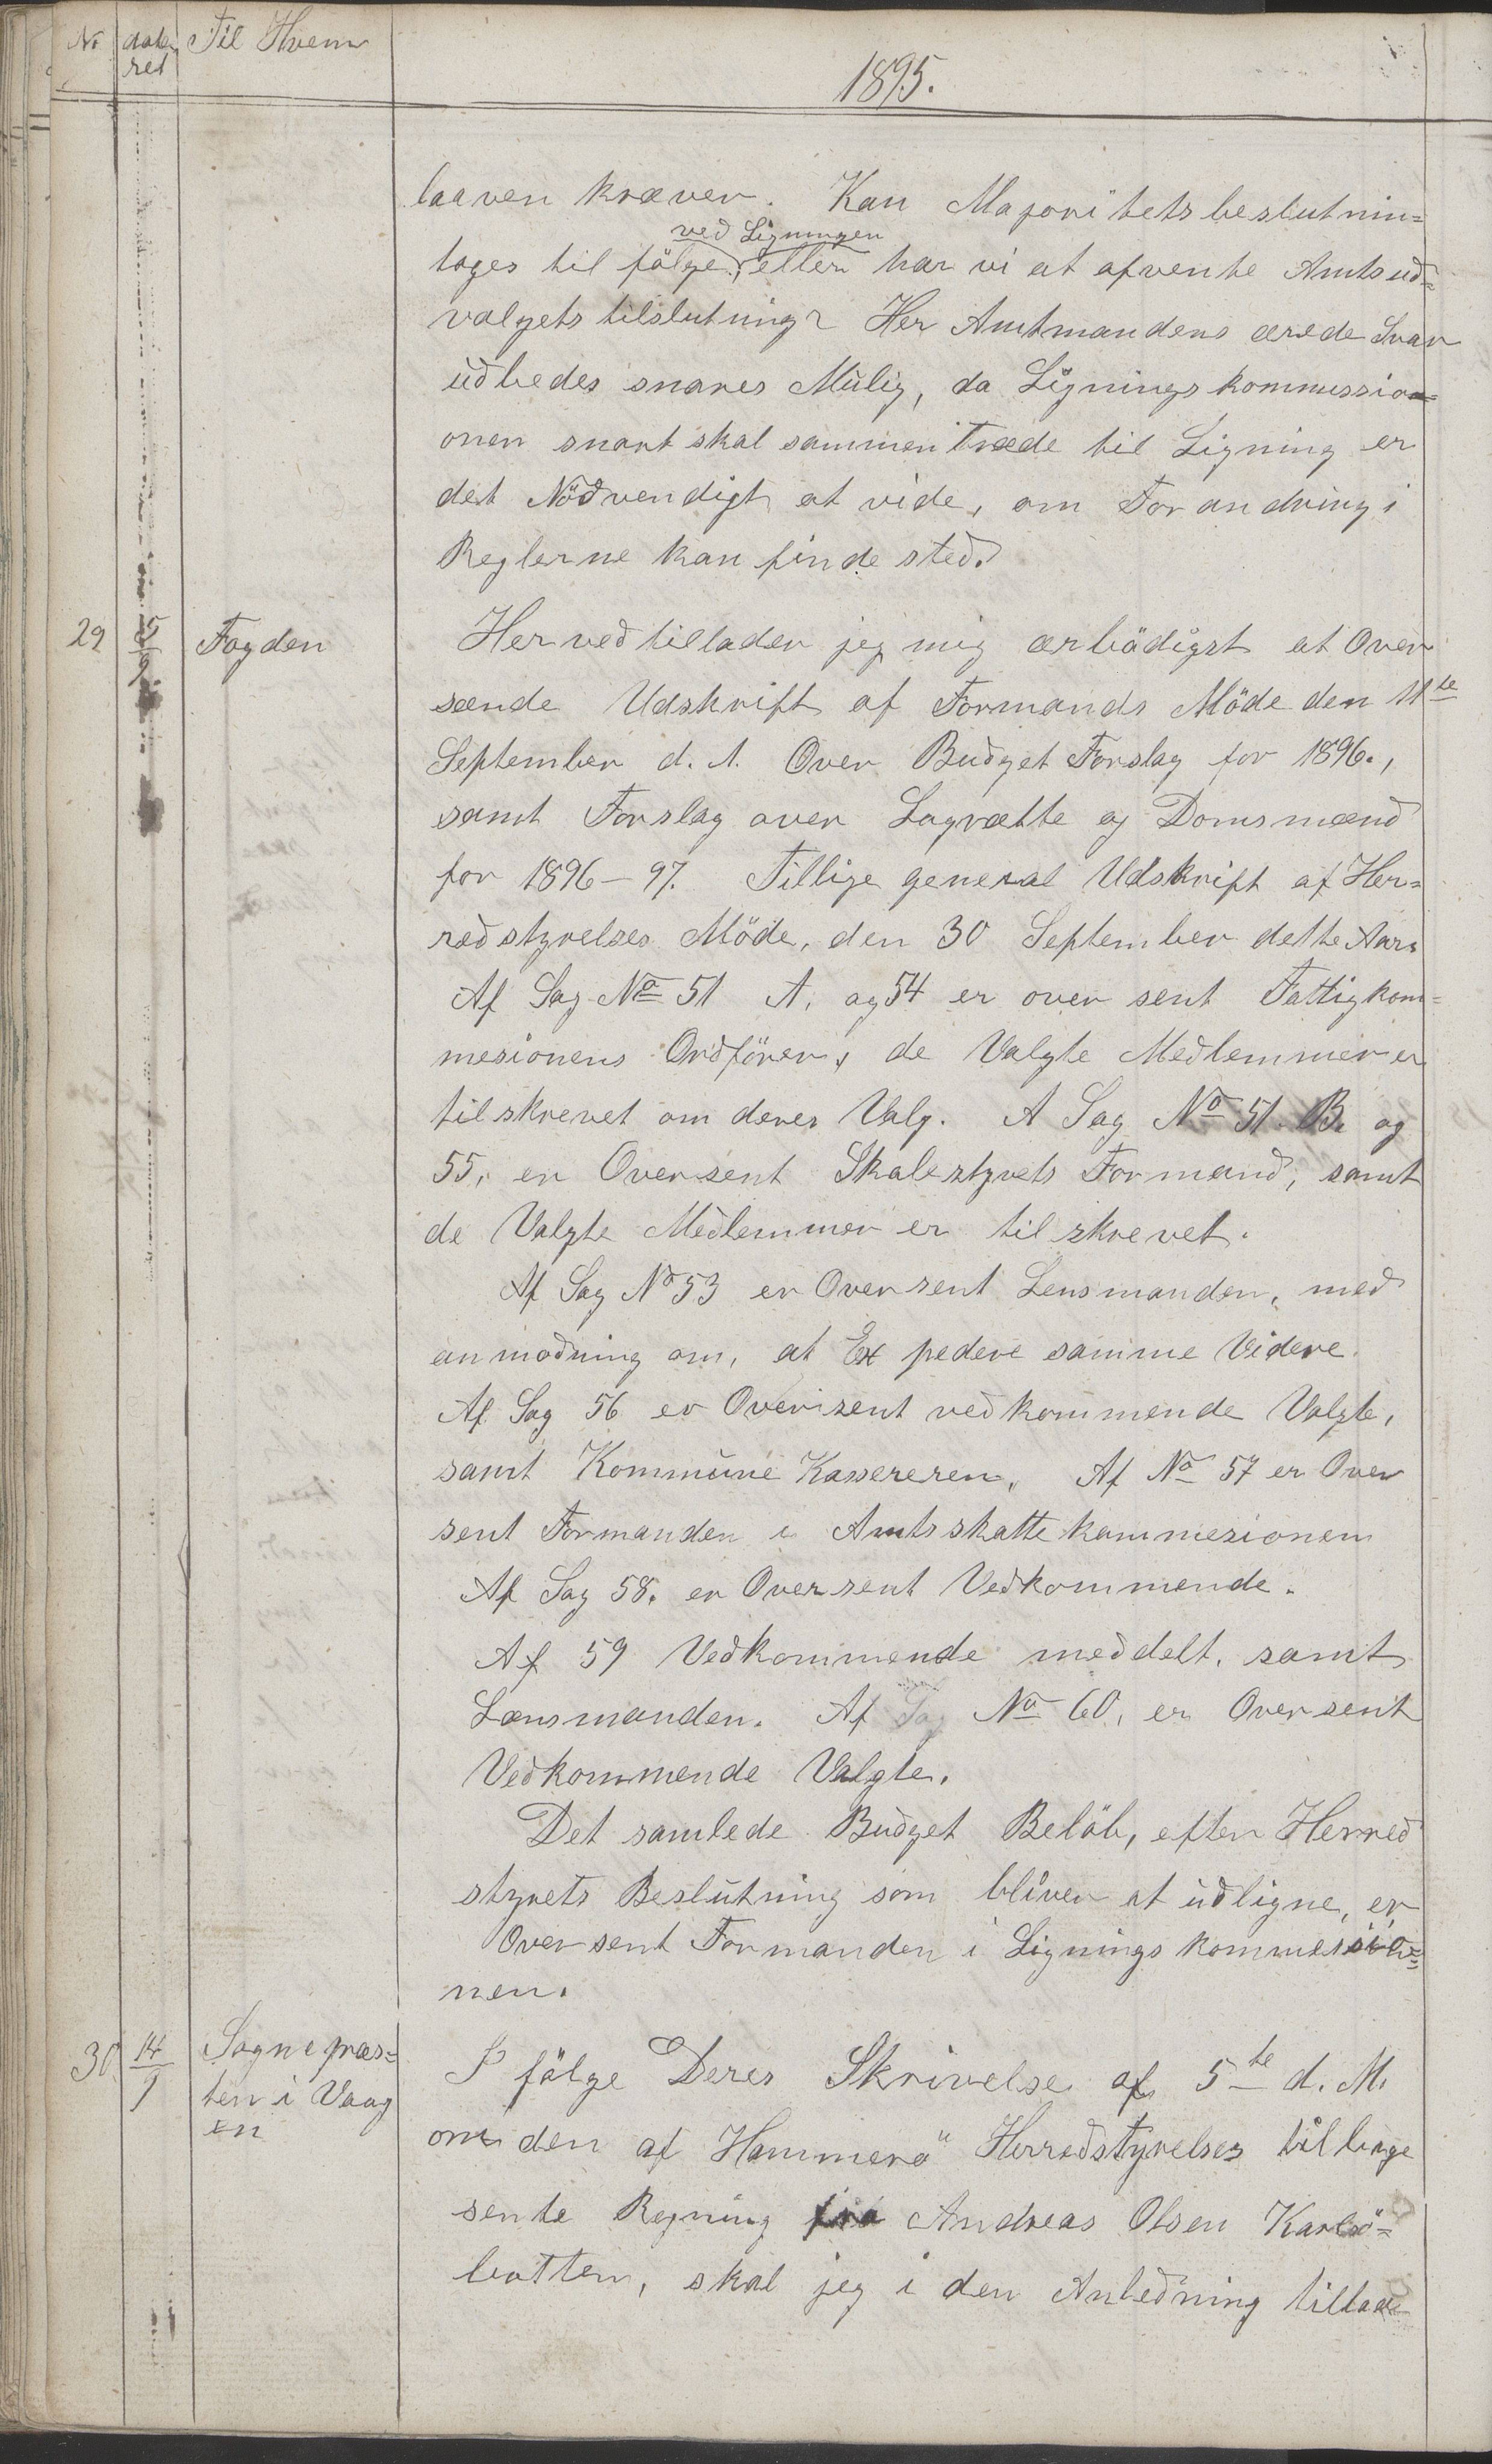 No date- Til Hvem
ret
1895.
laaven kræver. Kan Majoritetsbeslutnin=
ved Ligningen
tages til følge, eller har vi at afvente Amtsud=
valgets tilslutning? Her Amtmandens ærede Svar
udbedes snares Mulig, da Ligningskommission=
onen snart skal sammentræde til Ligning er
det Nödvendigt at vide, om Forandring i
Reglerne kan finde sted.
29 5/9 Fogden
Herved tillader jeg mig ærbödigst at Over
sænde Udskrift af Formands Möde den 11te
September d. A. Over Budget Forslag for 1896.,
samt Forslag over Lagrætte og Domsmænd
for 1896-97. Tillige general Udskrift af Her=
redstyrelses Möde, den 30 September dette Aar.
Af Sag No 51 A. og 54 er over sent Fattigkom=
mesionens Ordförer, de Valgte Medlemmer er
tilskrevet om deres Valg. A Sag No 51. B. og
55, er Oversent Skolestyrets Formand, samt
de Valgte Medlemmer er tilskrevet.
Af Sag No 53 er Oversent Lensmanden, med
anmodning om, at Expedere samme Videre.
Af Sag 56 er Oversent vedkommende Valgte,
samt Kommune Kassereren. Af No 57 er Over
sent Formanden i Amtsskattekommesionen
Af Sag 58. er Oversent Vedkommende.
Af 59 Vedkommende meddelt. samt
Lænsmanden. Af Sag No 60, er Oversent
Vedkommende Valgte.
Det samlede Budget Belöb, efter Herred
styrets Beslutning som bliver at udligne, er
Oversent Formanden i Lignings kommesio=
nen.
30 14/9 Sognepræs=
ten i Vaag
en
I fölge Deres Skrivelse af 5te d. M.
om den af Hammerö Herredstyrelses tilbage
sente Regning fra Andreas Olsen Karlsö=
botten, skal jeg i den Anledning tillade